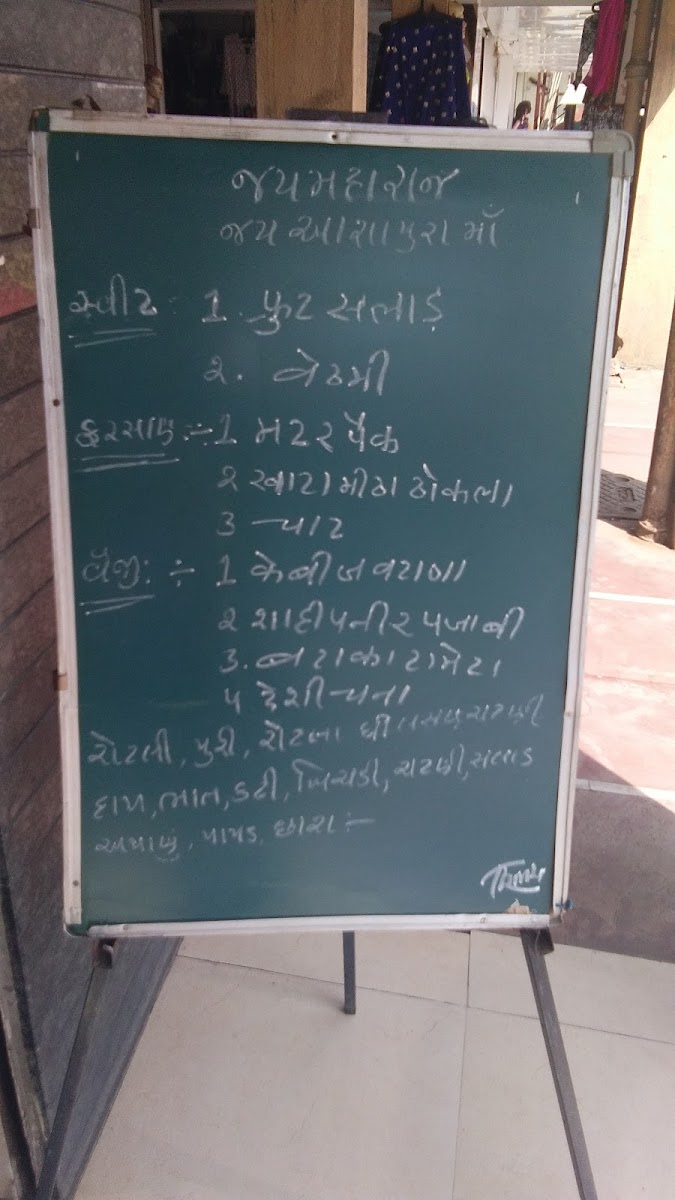 જય મહારાજ
જય આશાપુરા માઁ
સ્વીટ : 1. ફ્રુટ સલાડ
૨. વેઠમી
ફરસાણ :- 1 મટર પૈક
૨ ખાટા મીઠા ઢોકલા
૩ ચાટ
વેજી: ÷ 1 કેબીજ વટાણા
૨ શાહી પનીર પંજાબી
૩. બટાકા ટામેટા
૫ દેશી ચના
રોટલી, પુરી, રોટલા ઘી લસણ ચટણી
દાળ, ભાત, કઢી, ખિચડી, ચટણી, સલાડ
અથાણું, પાપડ, છાશ :-